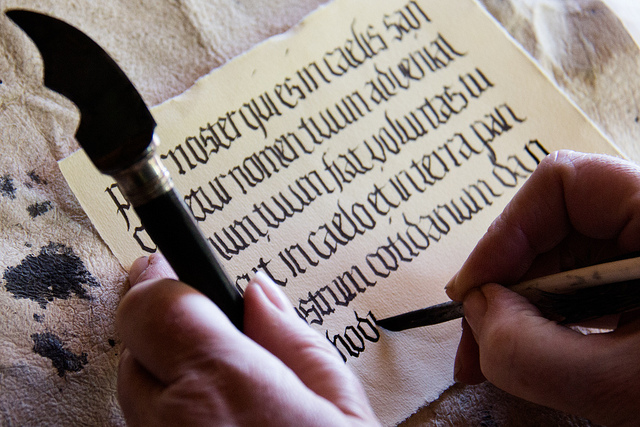 P rnoster qui es in caelis san
c etur nomen tuum adveniat
num tuum fiat voluntas tu
cut in caelo et in terra pan
strum cotidianum da n
hodi